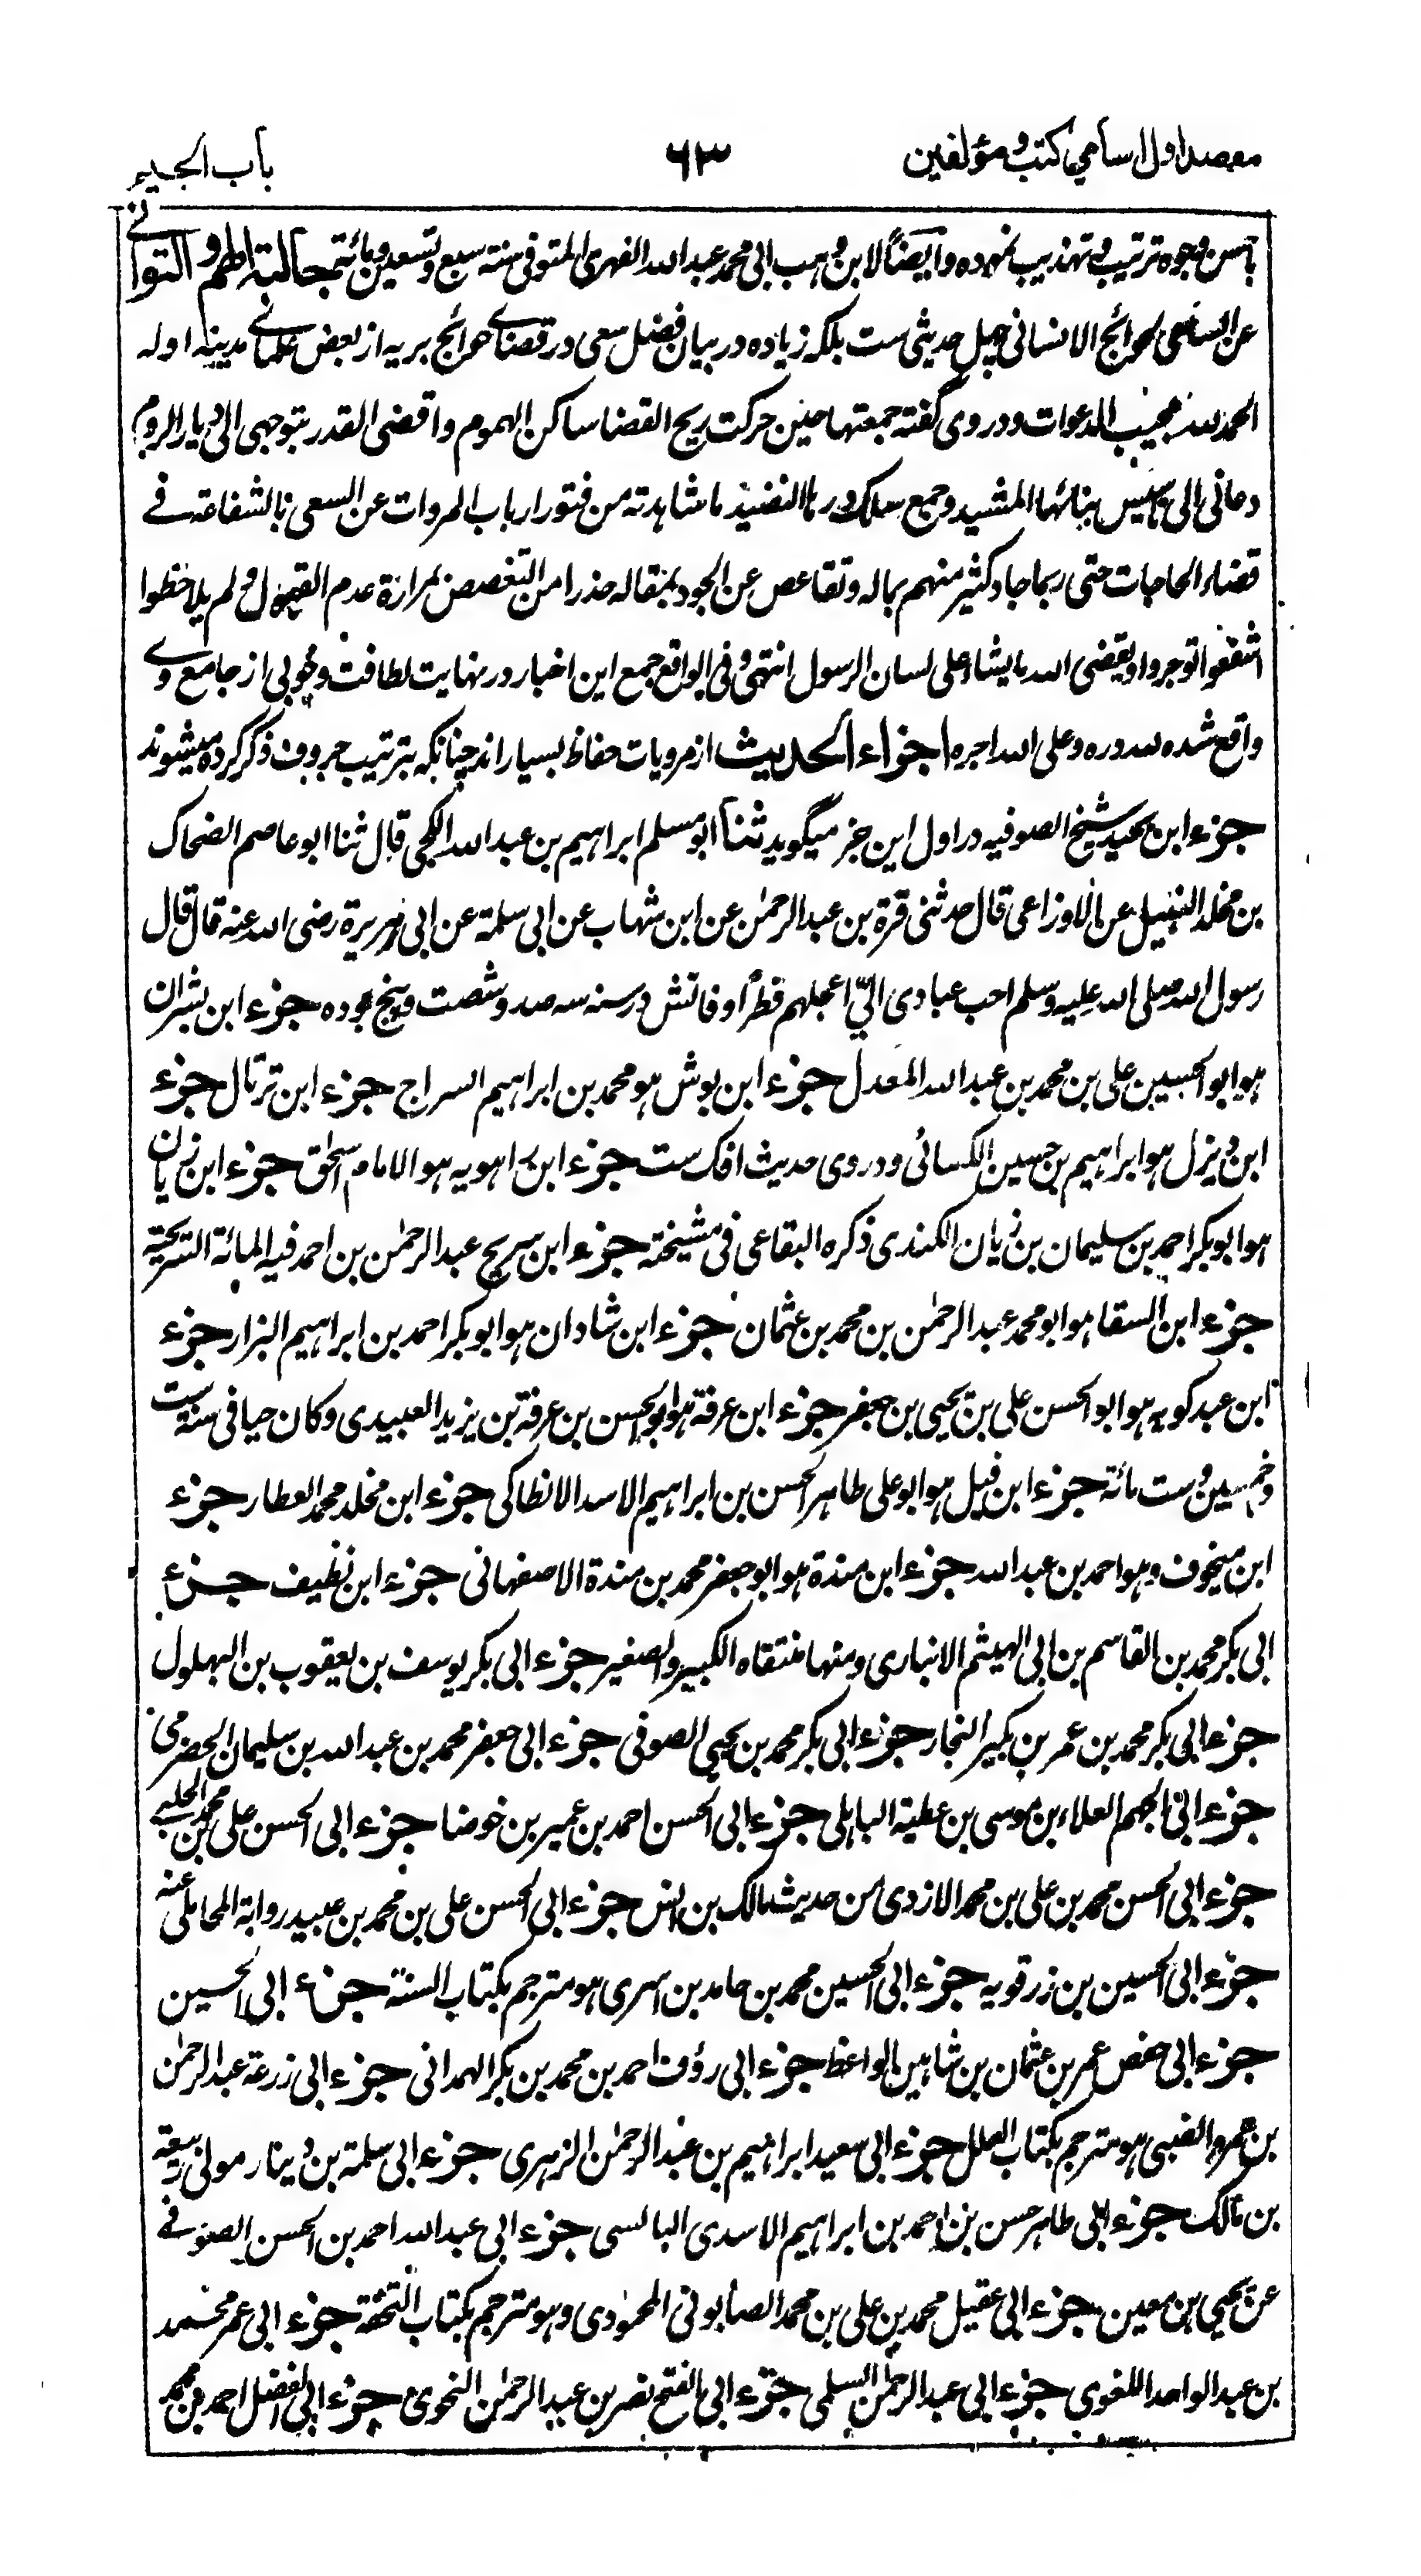 مقصد اول اسامی کتب و مؤلفین ۶۳ باب الجیم
باحسن وجوه ترتیب و تهذیب نموده و ایضاً لابن وهب ابی محمد عبد الله الفهری المتوفی سنة سبع و تسعین و مائة جالبة الهم و التوانی
عن الساعی لحوائج الانسانی چهل حدیثی ست بلکه زیاده در بیان فضل سعی در قضای حوائج بریه از بعض علمای مدینه اوله
الحمد لله مجیب الدعوات و در وی گفته جمعتها حین حرکت ریح القضا ساکن الهموم و اقضی القدر بتوجهی الی دیار الروم
دعانی الی تاسیس بنائها المشید و جمع سلک درها النضید ما شاهدته من فتور ارباب المروات عن السعی بالشفاعة فی
قضاء الحاجات حتی ربما جاد کثیر منهم بماله و تقاعص عن الجود بمقاله حذرا من التغصص بمرارة عدم القبول و لم یلاحظوا
اشفعوا توجروا و یقضی الله ما یشاء علی لسان الرسول انتهی و فی الواقع جمع این اخبار در نهایت لطافت و خوبی از جامع وی
واقع شده لله دره و علی الله اجره اجزاء الحدیث از مرویات حفاظ بسیار اند چنانکه بترتیب حروف ذکر کرده میشوند
جزء ابن نجید شیخ الصوفیه در اول این جزء میگوید ثنا ابو مسلم ابراهیم بن عبد الله الکجی قال ثنا ابو عاصم الضحاک
بن مخلد النبیل عن الاوزاعی قال حدثنی قرة بن عبد الرحمٰن عن ابن شهاب عن ابی سلمة عن ابی هریرة رضی الله عنه قال قال
رسول الله صلی الله علیه وسلم احب عبادی الیّ اعجلهم فطرًا وفاتش در سنه سه صد و شصت و پنج بوده جزء ابن بشران
هو ابو الحسین علی بن محمد بن عبد الله المعدل جزء ابن بوش هو محمد بن ابراهیم السراج جزء ابن ترتال جزء
ابن دیزل هو ابراهیم بن حسین الکسائی و در وی حدیث افک ست جزء ابن راهویه هو الامام اسحٰق جزء ابن زبان
هو ابو بکر احمد بن سلیمان بن زبان الکندی ذکره البقاعی فی مشیخته جزء ابن سریج عبد الرحمٰن بن احمد فیه المائة السریجیة
جزء ابن السقا هو ابو محمد عبد الرحمٰن بن محمد بن عثمان جزء ابن شادان هو ابو بکر احمد بن ابراهیم البزار جزء
ابن عبد کویه هو ابو الحسن علی بن یحیی بن جعفر جزء ابن عرفة هو ابو الحسن بن عرفة بن یزید العبیدی و کان حیا فی سنة ست
و خمسین و ست مائة جزء ابن فیل هو ابو علی طاهر الحسن بن ابراهیم الاسد الانطاکی جزء ابن مخلد محمد العطار جزء
ابن میخوف و هو احمد بن عبد الله جزء ابن مندة هو ابو جعفر محمد بن مندة الاصفهانی جزء ابن نظیف جزء
ابی بکر محمد بن القاسم بن ابی الهیثم الانباری و منها منتقاه الکبیر و الصغیر جزء ابی بکر یوسف بن یعقوب بن البهلول
جزء ابی بکر محمد بن عمر بن بکیر النجار جزء ابی بکر محمد بن یحیی الصوفی جزء ابی جعفر محمد بن عبد الله بن سلیمان الحضرمی
جزء ابی الجهم العلاء بن موسی بن عطیة الباهلی جزء ابی الحسن احمد بن عمیر بن خوصا جزء ابی الحسن علی بن محمد الحلبی
جزء ابی الحسن محمد بن علی بن محمد الازدی من حدیث مالک بن انس جزء ابی الحسن علی بن محمد بن عبید روایة المحاملی عنه
جزء ابی الحسین بن زرقویه جزء ابی الحسین محمد بن حامد بن السری هو مترجم بکتاب السنة جزء ابی الحسین
جزء ابی حفص عمر بن عثمان بن شاهین الواعظ جزء ابی روؤف احمد بن محمد بن بکر الهمدانی جزء ابی زرعة عبد الرحمٰن
بن عمرو الضبی هو مترجم بکتاب العلل جزء ابی سعید ابراهیم بن عبد الرحمٰن الزهری جزء ابی سلمة بن دینار مولی ربیعة
بن مالک جزء ابی طاهر حسن بن احمد بن ابراهیم الاسدی البالسی جزء ابی عبد الله احمد بن الحسن الصوفی
عن یحیی بن معین جزء ابی عقیل محمد بن علی بن محمد الصابونی المحمودی و هو مترجم بکتاب التحفة جزء ابی عمر محمد
بن عبد الواحد اللغوی جزء ابی عبد الرحمٰن السلمی جزء ابی الفتح نصر بن عبد الرحمٰن النحوی جزء ابی الفضل احمد بن محمد